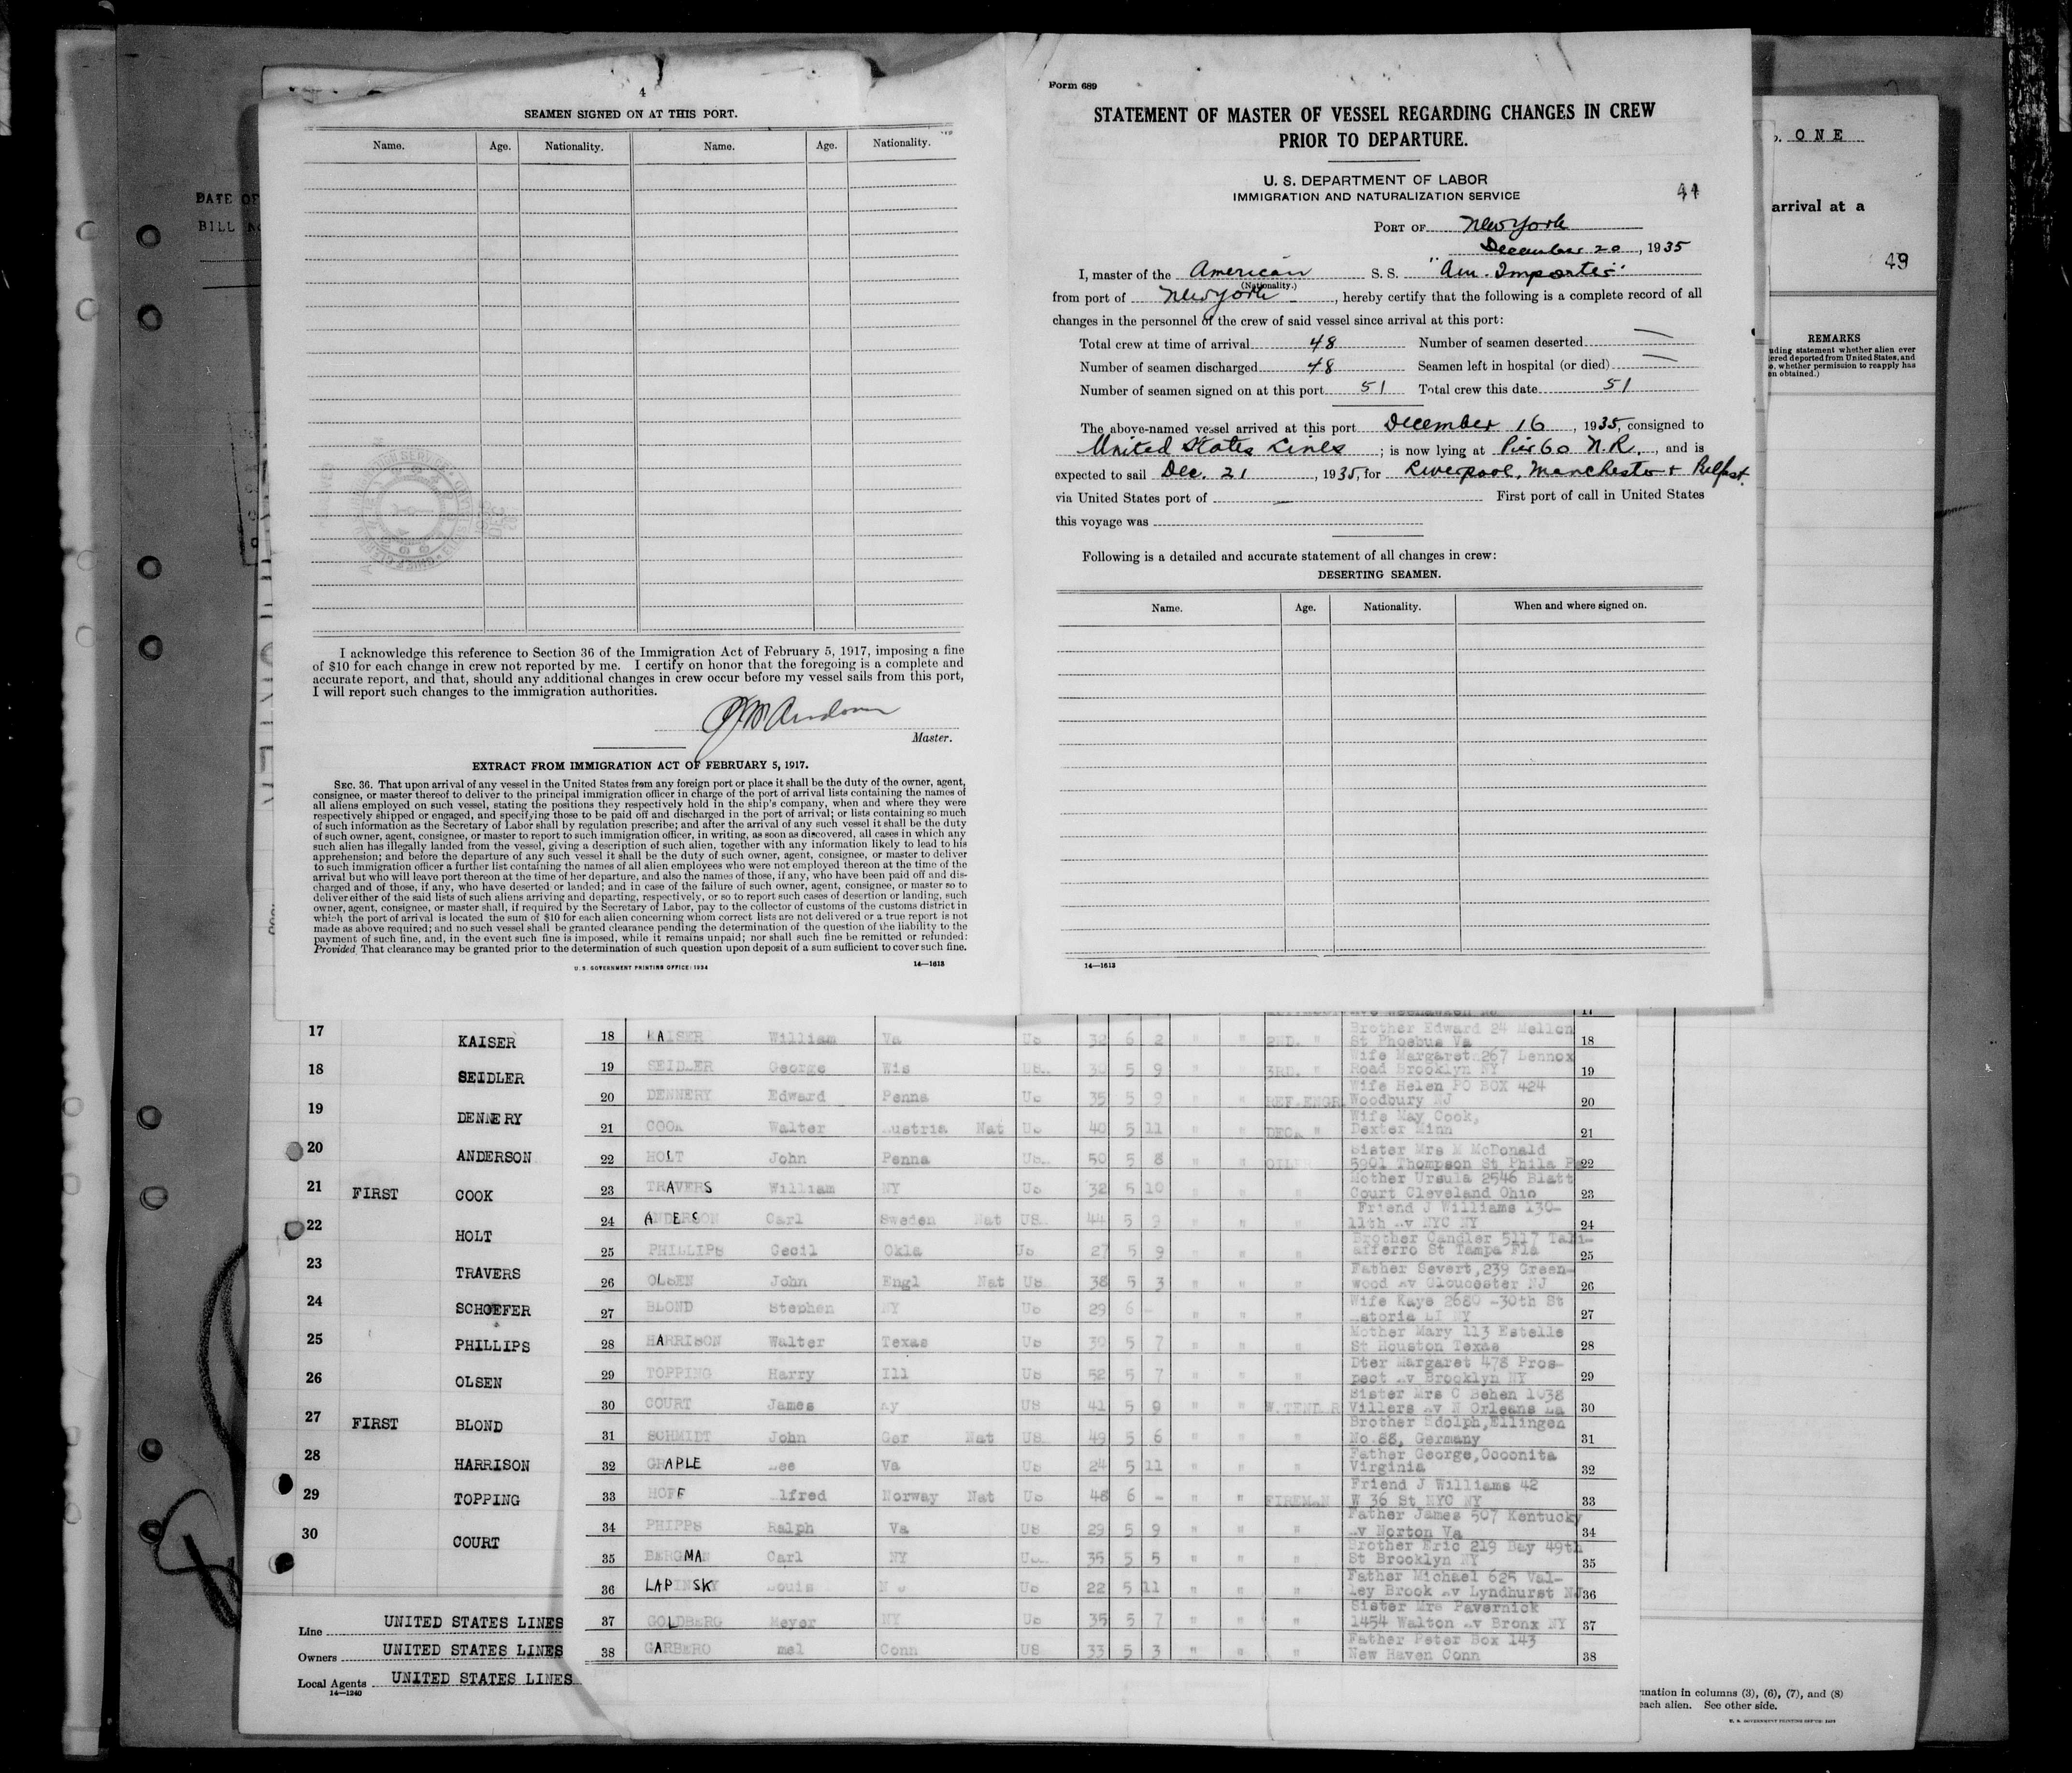 4
SEAMEN SIGNED ON AT THIS PORT.
Name. Age. Nationality. Name. Age. Nationality.
I acknowledge this reference to Section 36 of the Immigration Act of February 5, 1917, imposing a fine
of $10 for each change in crew not reported by me. I certify on honor that the foregoing is a complete and
accurate report, and that, should any additional changes in crew occur before my vessel sails from this port,
I will report such changes to the immigration authorities.
Master.
EXTRACT FROM IMMIGRATION ACT OF FEBRUARY 5, 1917.
SEC. 36. That upon arrival of any vessel in the United States from any foreign port or place it shall be the duty of the owner, agent,
consignee, or master thereof to deliver to the principal immigration officer in charge of the port of arrival lists containing the names of
all aliens employed on such vessel, stating the positions they respectively hold in the ship's company, when and where they were
respectively shipped or engaged, and specifying those to be paid off and discharged in the port of arrival; or lists containing so much
of such information as the Secretary of Labor shall by regulation prescribe; and after the arrival of any such vessel it shall be the duty
of such owner, agent, consignee, or master to report to such immigration officer, in writing, as soon as discovered, all cases in which any
such alien has illegally landed from the vessel, giving a description of such alien, together with any information likely to lead to his
apprehension; and before the departure of any such vessel it shall be the duty of such owner, agent, consignee, or master to deliver
to such immigration officer a further list containing the names of all alien employees who were not employed thereon at the time of the
arrival but who will leave port thereon at the time of her departure, and also the names of those, if any, who have been paid off and dis-
charged and of those, if any, who have deserted or landed; and in case of the failure of such owner, agent, consignee, or master so to
deliver either of the said lists of such aliens arriving and departing, respectively, or so to report such cases of desertion or landing, such
owner, agent, consignee, or master shall, if required by the Secretary of Labor, pay to the collector of customs of the customs district in
which the port of arrival is located the sum of $10 for each alien concerning whom correct lists are not delivered or a true report is not
made as above required; and no such vessel shall be granted clearance pending the determination of the question of the liability to the
payment of such fine, and, in the event such fine is imposed, while it remains unpaid; nor shall such fine be remitted or refunded:
Provided, That clearance may be granted prior to the determination of such question upon deposit of a sum sufficient to cover such fine.
U. S. GOVERNMENT PRINTING OFFICE: 1934 14—1613
Form 689
STATEMENT OF MASTER OF VESSEL REGARDING CHANGES IN CREW
PRIOR TO DEPARTURE.
U. S. DEPARTMENT OF LABOR
IMMIGRATION AND NATURALIZATION SERVICE
44
PORT OF New York
December 20, 1935
I, master of the American S. S. "Am. Importer"
(Nationality.)
from port of New York, hereby certify that the following is a complete record of all
changes in the personnel of the crew of said vessel since arrival at this port:
Total crew at time of arrival 48 Number of seamen deserted —
Number of seamen discharged 48 Seamen left in hospital (or died) —
Number of seamen signed on at this port 51 Total crew this date 51
The above-named vessel arrived at this port December 16, 1935, consigned to
United States Lines; is now lying at Pier 60 N.R., and is
expected to sail Dec. 21, 1935, for Liverpool, Manchester + Belfast.
via United States port of — First port of call in United States
this voyage was
Following is a detailed and accurate statement of all changes in crew:
DESERTING SEAMEN.
Name. Age. Nationality. When and where signed on.
14—1613
DATE OF
BILL
ONE
arrival at a
49
REMARKS
uding statement whether alien ever
ered deported from United States, and
o, whether permission to reapply has
en obtained.)
17 KAISER
18 SEIDLER
19 DENNERY
20 ANDERSON
21 FIRST COOK
22 HOLT
23 TRAVERS
24 SCHOEFER
25 PHILLIPS
26 OLSEN
27 FIRST BLOND
28 HARRISON
29 TOPPING
30 COURT
Line UNITED STATES LINES
Owners UNITED STATES LINES
Local Agents UNITED STATES LINES
14—1240
17
18 KAISER William Va US 32 6 2 " " 2ND. " Brother Edward 24 Mellen
St Phoebus Va 18
19 SEIDLER George Wis US 30 5 9 " " 3RD. " Wife Margaret 267 Lennox
Road Brooklyn NY 19
20 DENNERY Edward Penna US 35 5 9 " " REF.ENGR Wife Helen PO BOX 424
Woodbury NJ 20
21 COOK Walter Austria Nat US 40 5 11 " " DECK " Wife May Cook,
Dexter Minn 21
22 HOLT John Penna US 50 5 8 " " OILER Sister Mrs M McDonald
5901 Thompson St Phila Pa 22
23 TRAVERS William NY US 32 5 10 " " " Mother Ursula 2546 Blatt
Court Cleveland Ohio 23
24 ANDERSON Carl Sweden Nat US 44 5 9 " " " Friend J Williams 130-
11th Av NYC NY 24
25 PHILLIPS Cecil Okla US 27 5 9 " " " Brother Candler 5117 Tali-
afferro St Tampa Fla 25
26 OLSEN John Engl Nat US 38 5 3 " " " Father Severt, 239 Green-
wood Av Gloucester NJ 26
27 BLOND Stephen NY US 29 6 - " " " Wife Kaye 2680 -30th St
Astoria LI NY 27
28 HARRISON Walter Texas US 30 5 7 " " " Mother Mary 113 Estelle
St Houston Texas 28
29 TOPPING Harry Ill US 52 5 7 " " " Dter Margaret 478 Pros-
pect Av Brooklyn NY 29
30 COURT James Ky US 41 5 9 " " W.TENDER Sister Mrs C Behen 1038
Villers Av N Orleans La 30
31 SCHMIDT John Ger Nat US 49 5 6 " " " Brother Adolph, Ellingen
No.88, Germany 31
32 GRAPLE Lee Va US 24 5 11 " " " Father George, Coconita
Virginia 32
33 HOFF Alfred Norway Nat US 48 6 - " " FIREMAN Friend J Williams 42
W 36 St NYC NY 33
34 PHIPPS Ralph Va US 29 5 9 " " " Father James 507 Kentucky
Av Norton Va 34
35 BERGMAN Carl NY US 35 5 5 " " " Brother Eric 219 Bay 49th
St Brooklyn NY 35
36 LAPINSKY Louis US 22 5 11 " " " Father Michael 625 Val-
ley Brook Av Lyndhurst NJ 36
37 GOLDBERG Meyer NY US 35 5 7 " " " Sister Mrs Pavernick
1454 Walton Av Bronx NY 37
38 GARBERO Conn US 33 5 3 " " " Father Peter Box 143
New Haven Conn 38
mation in columns (3), (6), (7), and (8)
each alien. See other side.